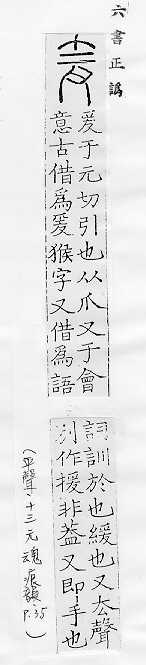 六書正譌
爰于元切引也从爪又于會
意古借爲爰猴字又借爲語
詞訓於也緩也又厺聲
别作援非葢又即手也
(平聲十三元魂痕韻 P.35)